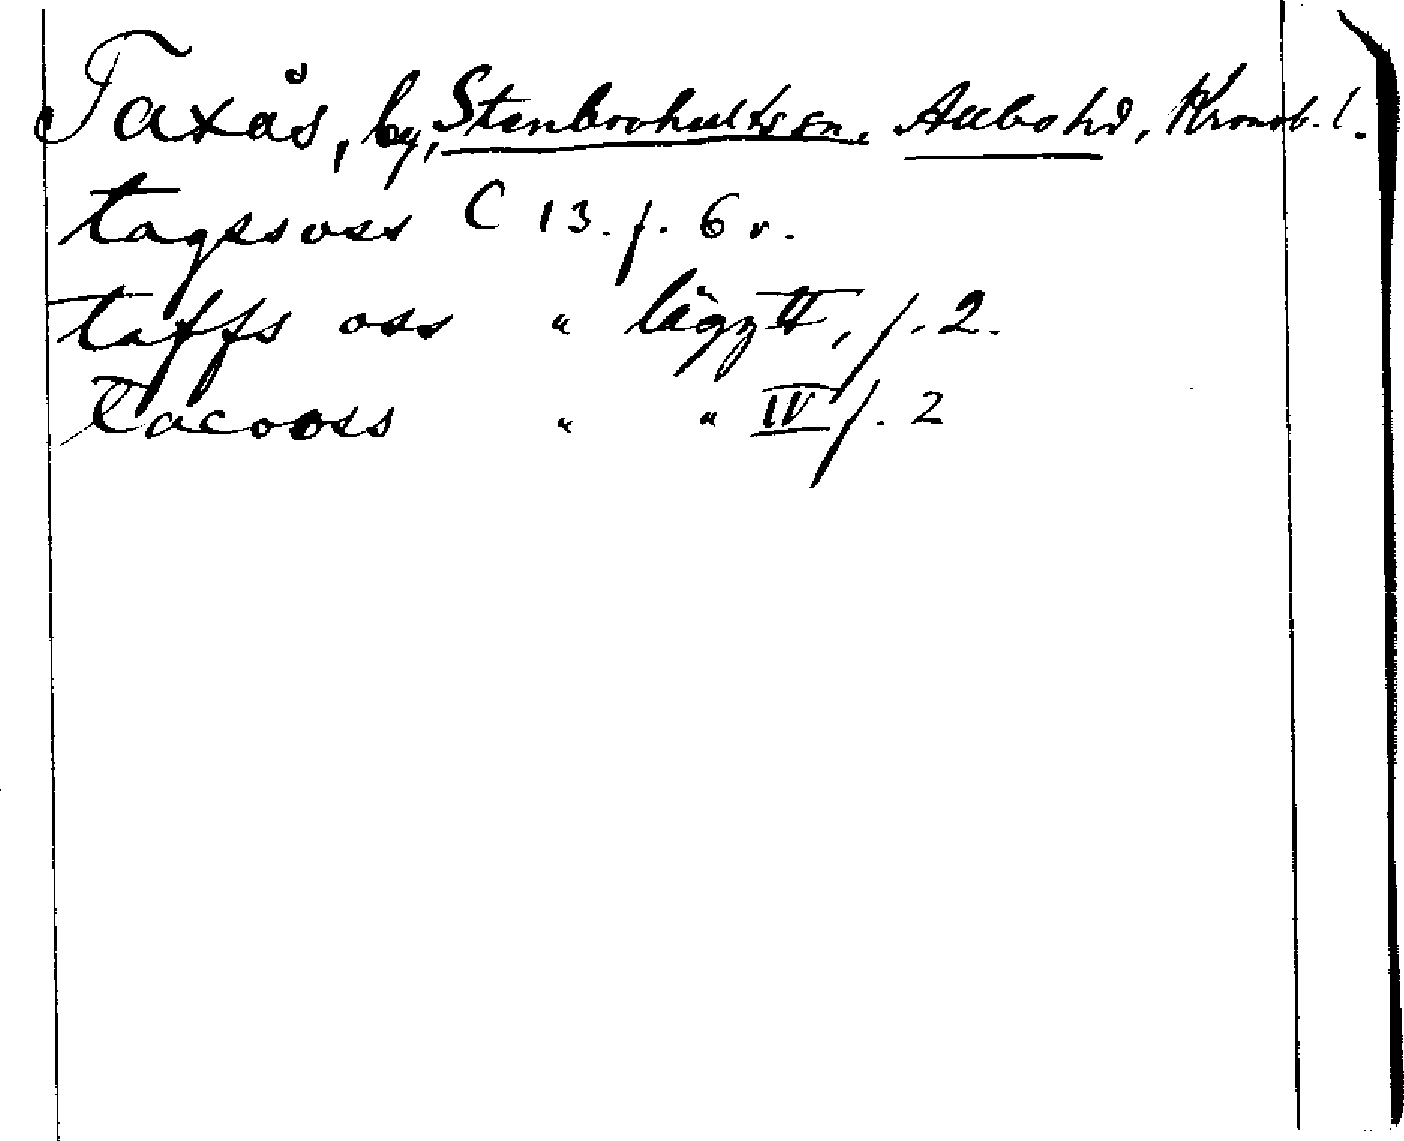 Taxås, by, Stenbrohults sn. Allbo hd, Kronob. l.
tagssoss C 13. f. 6 v.
taffs oss " lägg II, f. 2.
tacooss " " IV f. 2